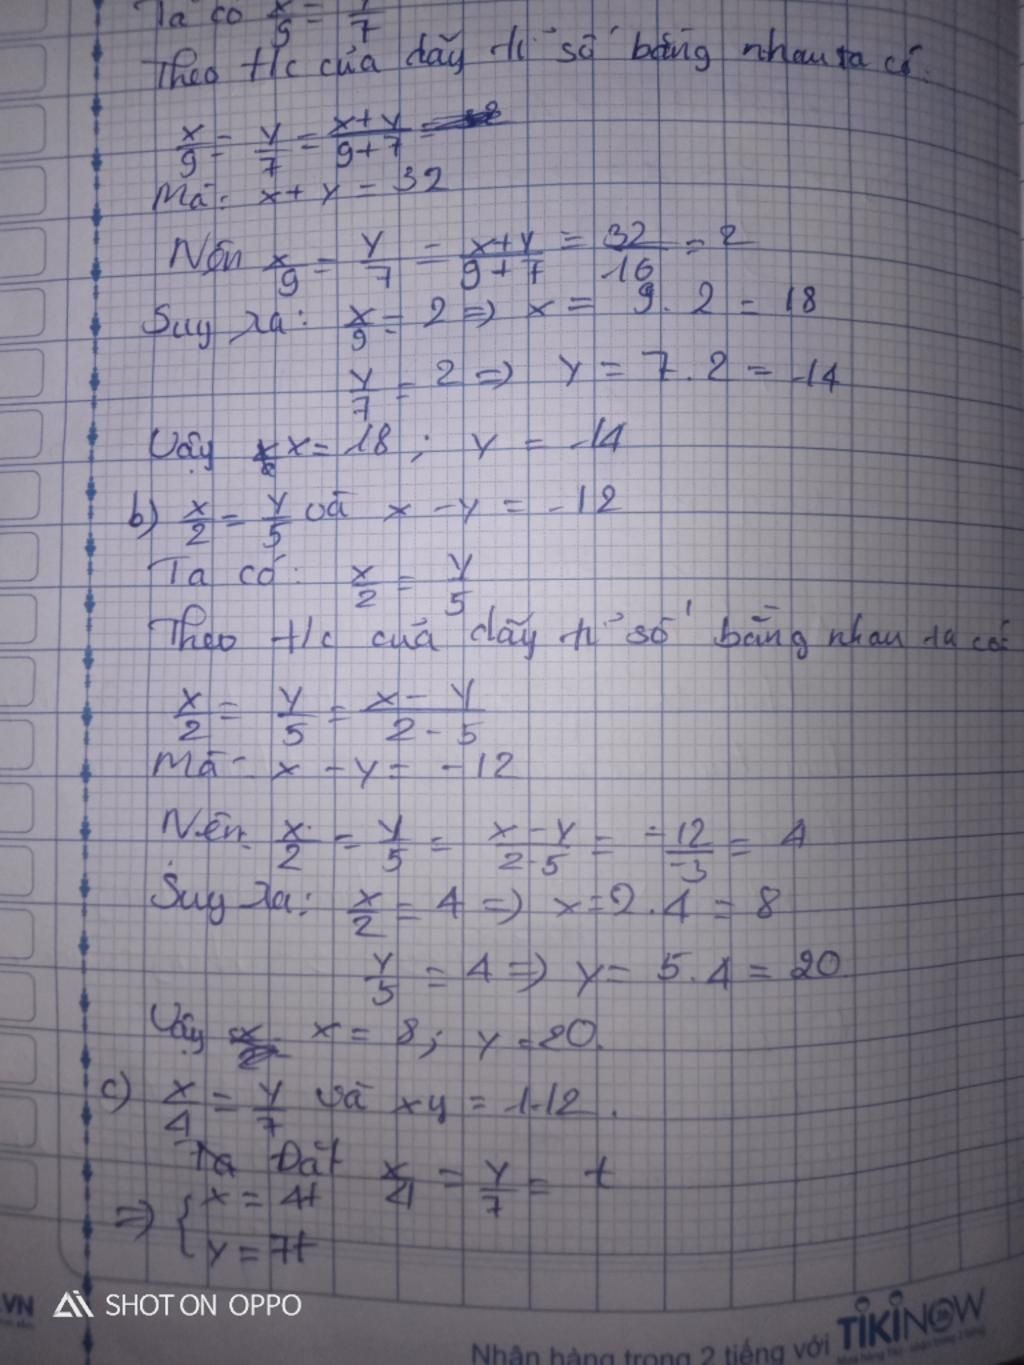 Ta có x/9 = y/7
Theo t/c của dãy tỉ số bằng nhau ta có:
x/9 = y/7 = x+y/9+7 =
Mà: x+y = 32
Nên x/9 = y/7 = x+y/9+7 = 32/16 = 2
Suy ra: x/9 = 2 => x = 9.2 = 18
y/7 = 2 => y = 7.2 = 14
Vậy x = 18; y = 14
b) x/2 = y/5 và x - y = -12
Ta có: x/2 = y/5
Theo t/c của dãy tỉ số bằng nhau ta có
x/2 = y/5 = x-y/2-5
Mà: x - y = -12
Nên: x/2 = y/5 = x-y/2-5 = -12/-3 = 4
Suy ra: x/2 = 4 => x = 2.4 = 8
y/5 = 4 => y = 5.4 = 20
Vậy x = 8; y = 20.
c) x/4 = y/7 và xy = 112.
Đặt x/4 = y/7 = t
=> { x = 4t
y = 7t
.VN
SHOT ON OPPO
TIKINOW
Nhận hàng trong 2 tiếng với